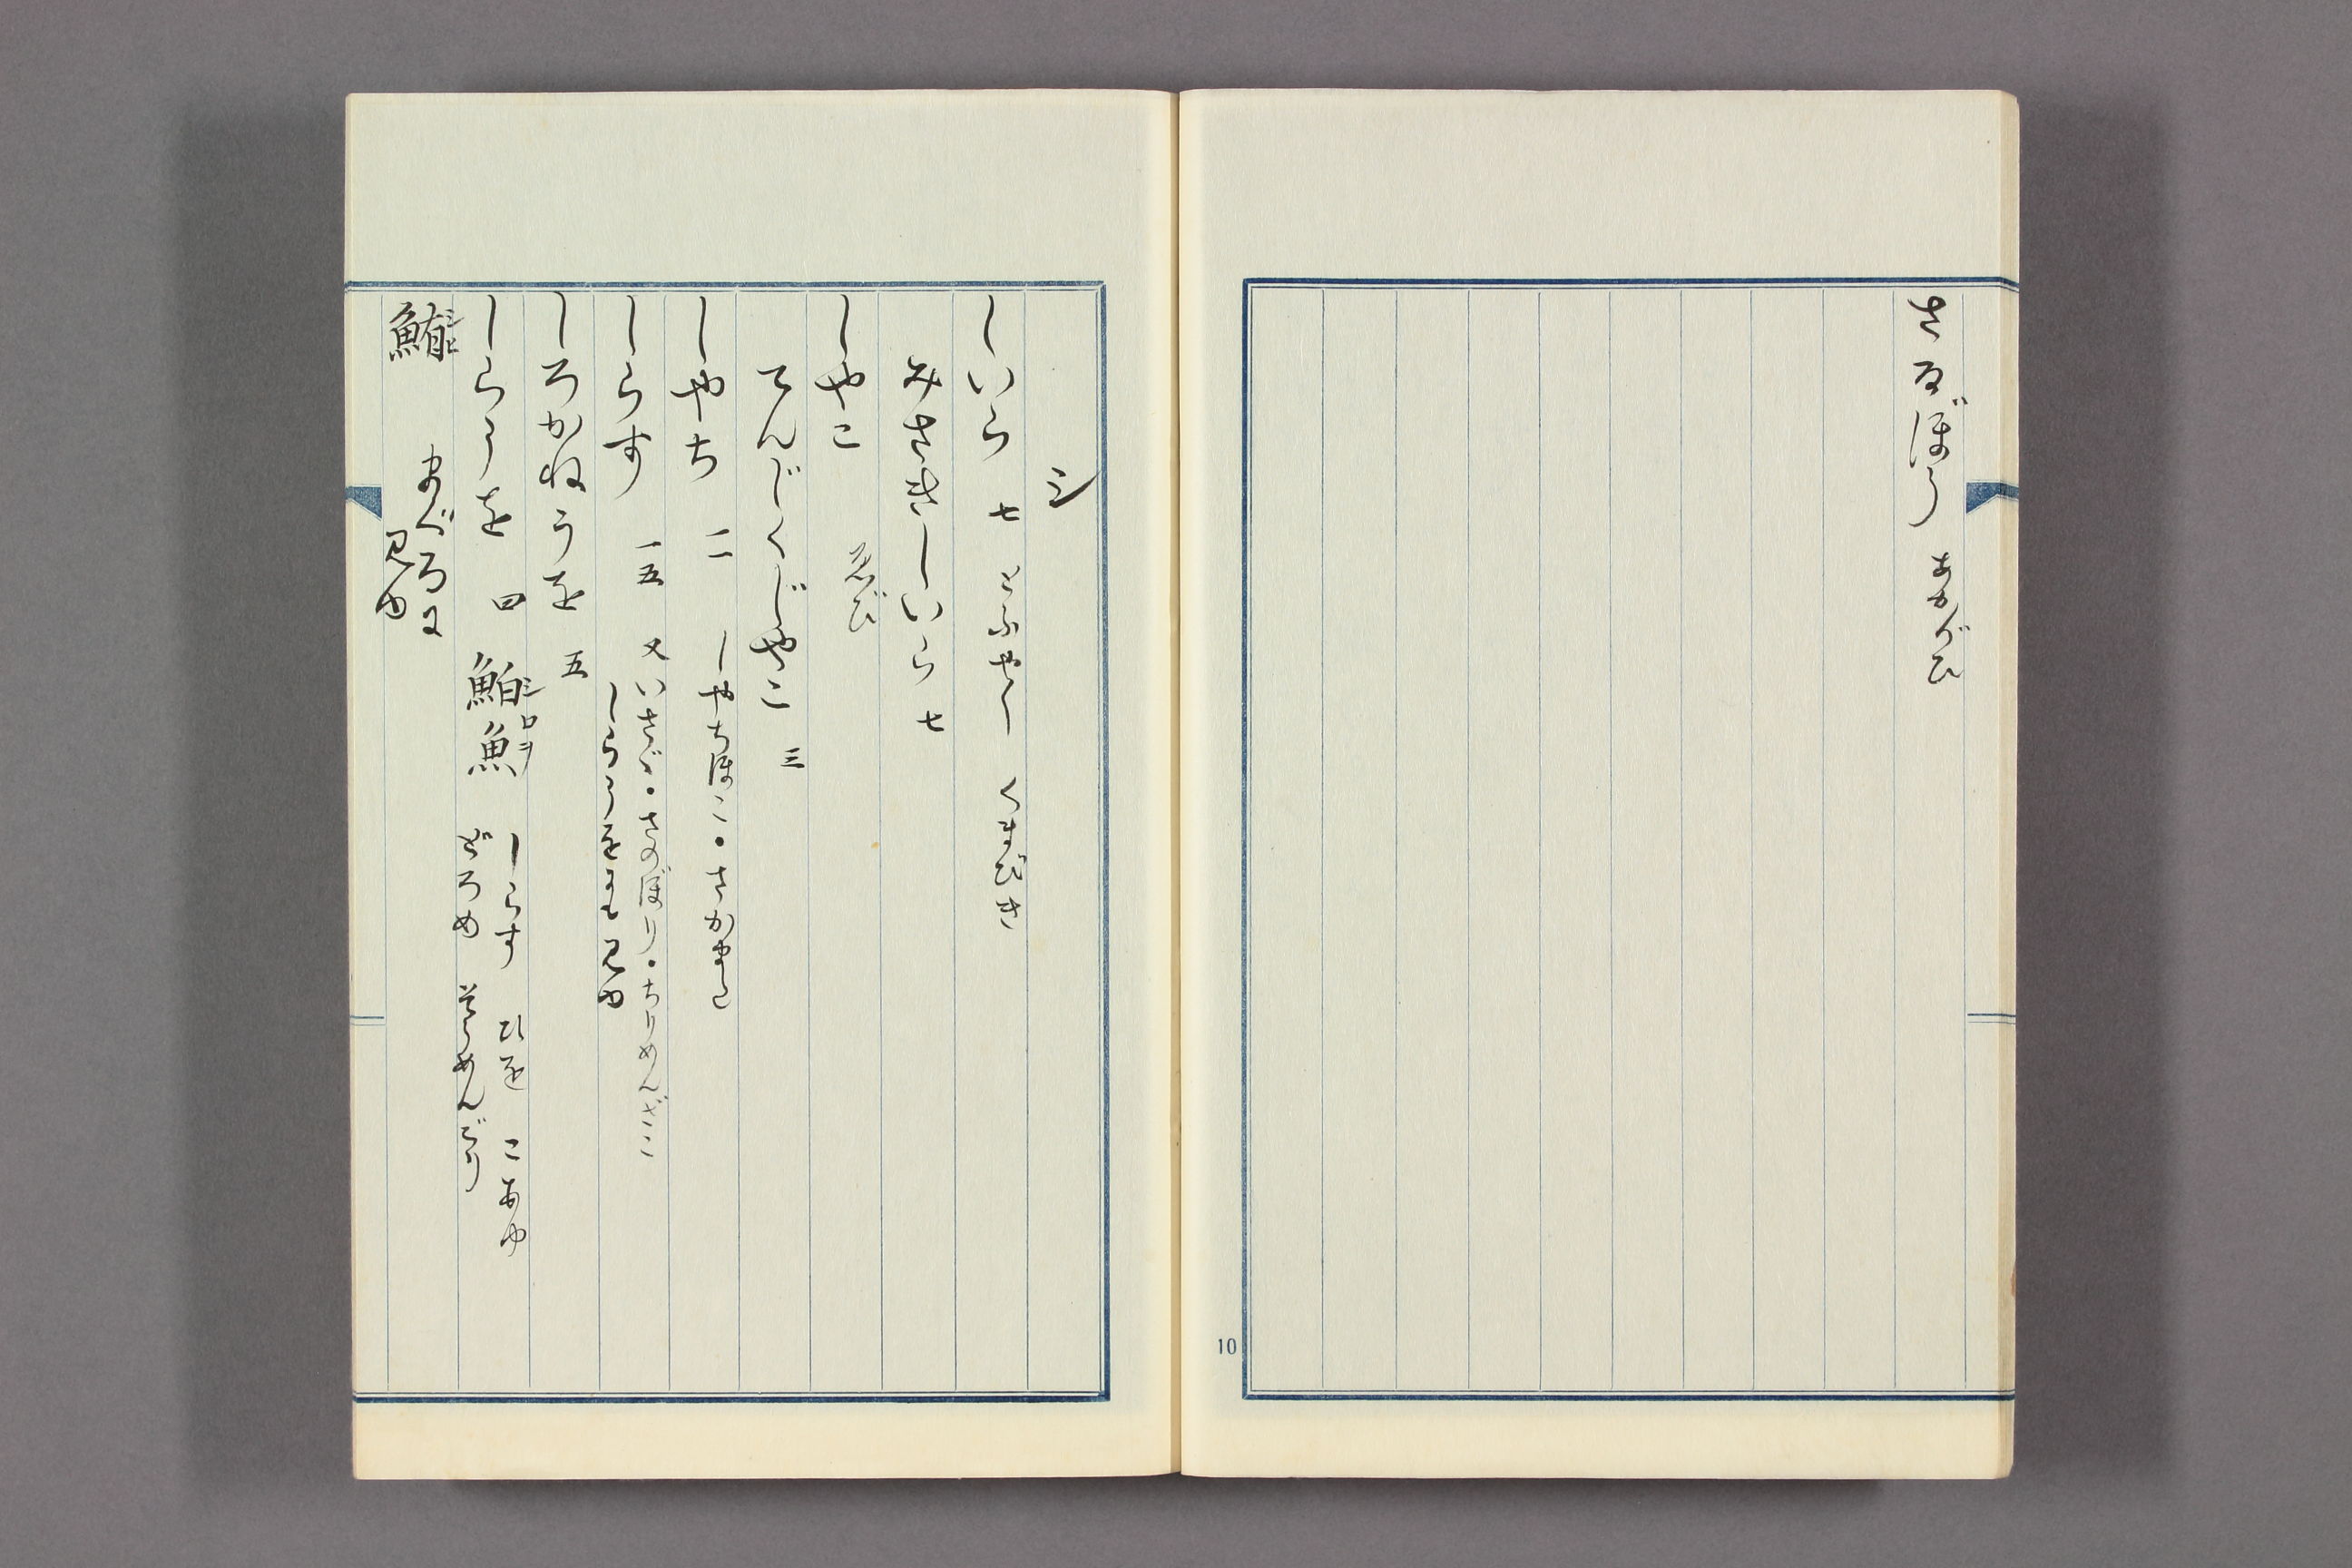 さるぼう あかがひ
10
シ
しいら 七 とふやく くまびき
みさきしいら 七
しやこ えび
てんじくじやこ 三
しやち 二 しやちほこ・さかまた
しらす 一五 又いさゞ・さのぼり・ちりめんざこ
しらうをも見ゆ
しろかねうを 五
しらうを 四 鮊魚 シロヲ しらす ひを こあゆ
どろめ そうめんごり
鮪 シビ まぐろに
見ゆ